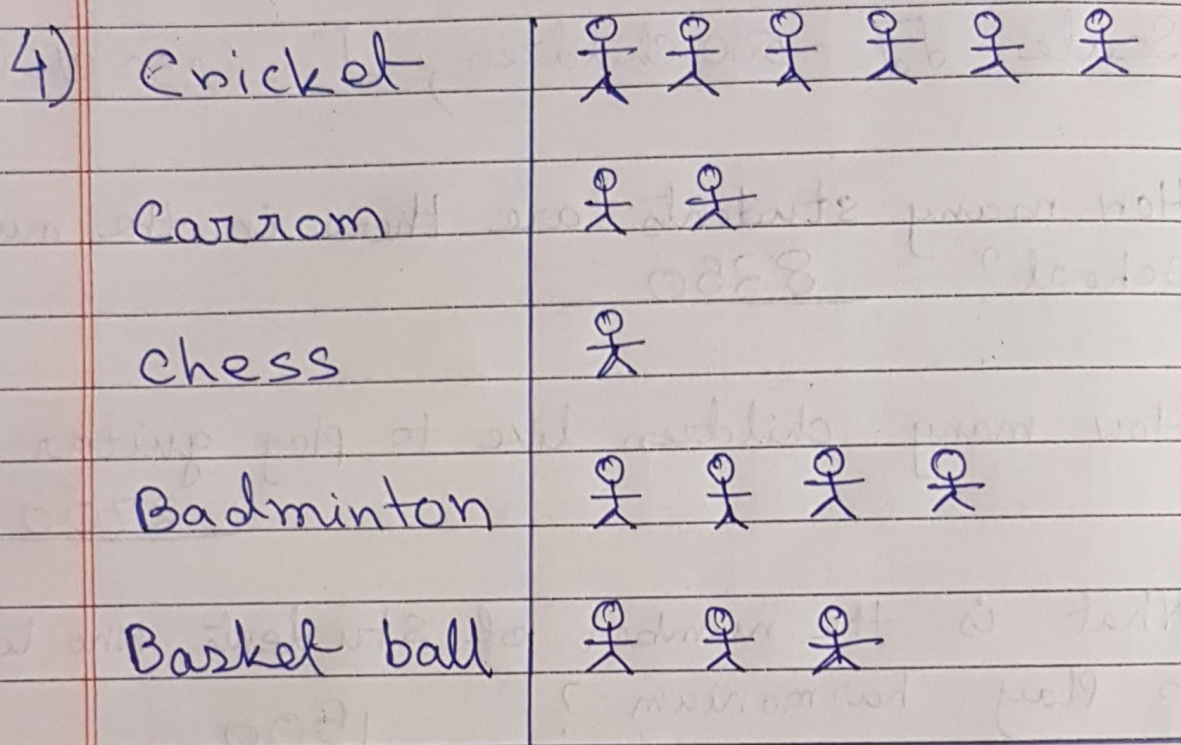 4) Cricket
Carrom
chess
Badminton
Basket ball